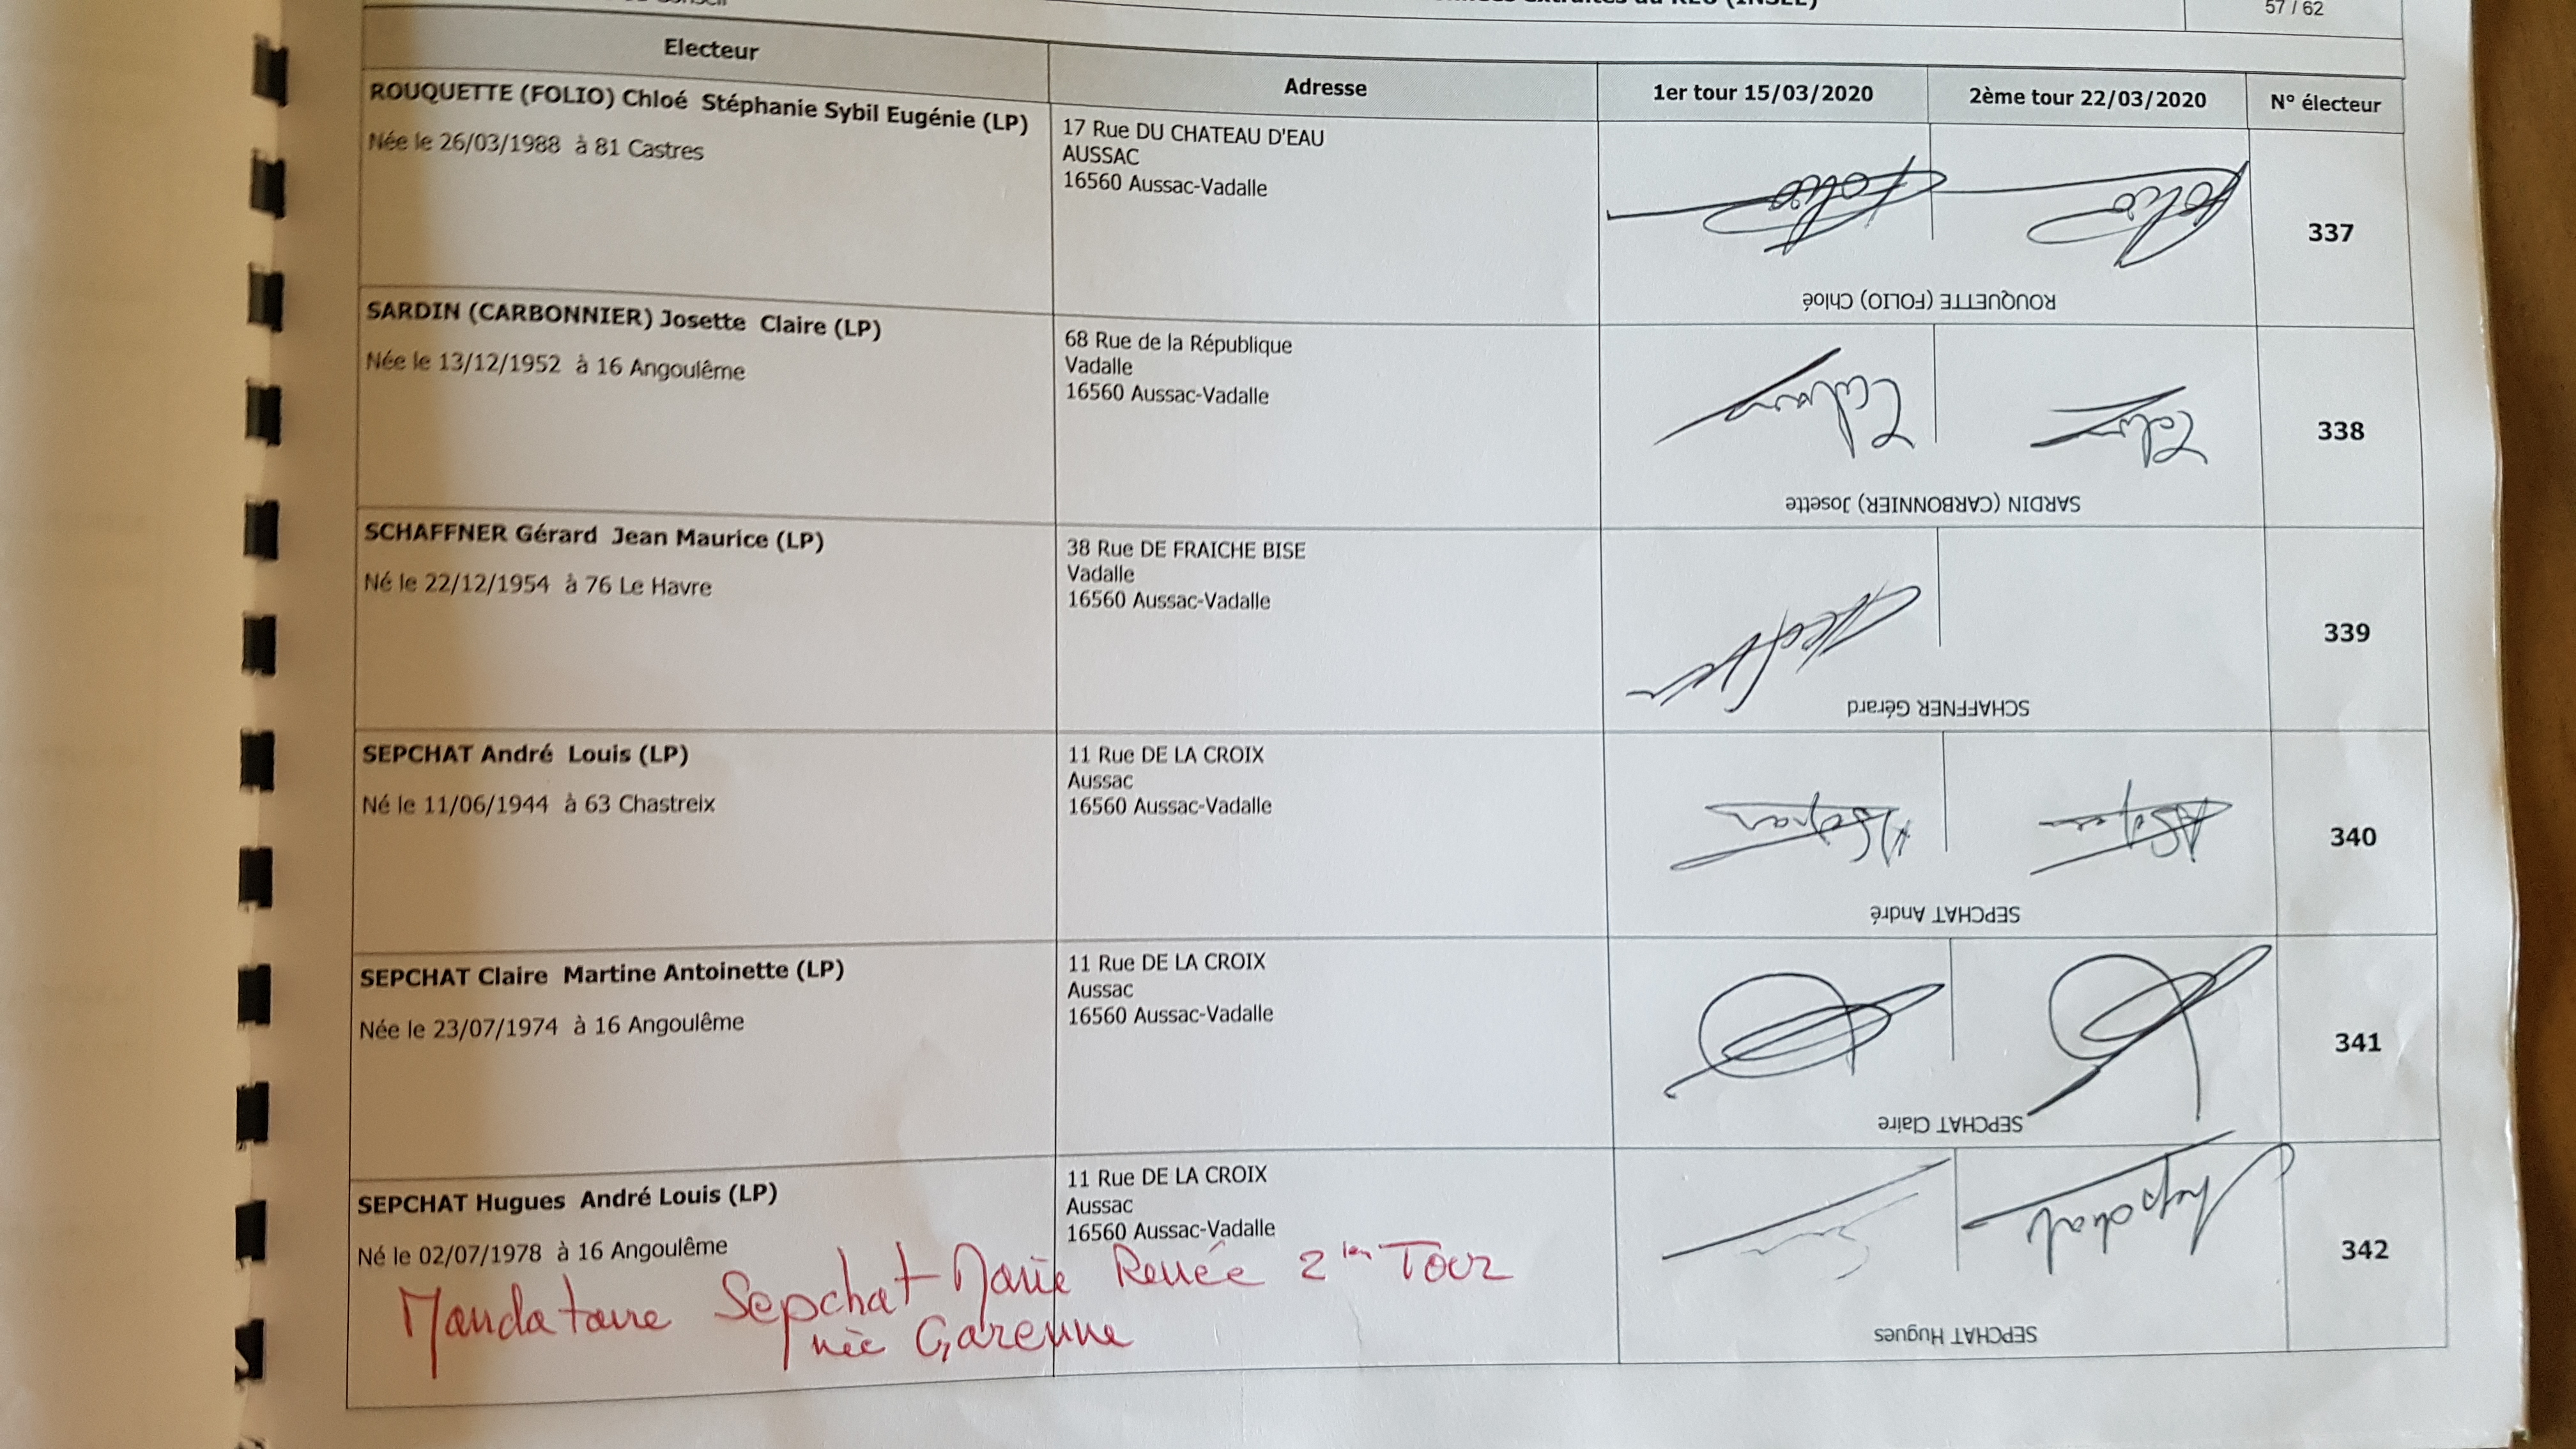 57 / 62
Electeur
Adresse
1er tour 15/03/2020
2ème tour 22/03/2020
N° électeur
ROUQUETTE (FOLIO) Chloé Stéphanie Sybil Eugénie (LP)
Née le 26/03/1988 à 81 Castres
17 Rue DU CHATEAU D'EAU
AUSSAC
16560 Aussac-Vadalle
Folio
Folio
ROUQUETTE (FOLIO) Chloé
337
SARDIN (CARBONNIER) Josette Claire (LP)
Née le 13/12/1952 à 16 Angoulême
68 Rue de la République
Vadalle
16560 Aussac-Vadalle
SARDIN (CARBONNIER) Josette
338
SCHAFFNER Gérard Jean Maurice (LP)
Né le 22/12/1954 à 76 Le Havre
38 Rue DE FRAICHE BISE
Vadalle
16560 Aussac-Vadalle
SCHAFFNER Gérard
339
SEPCHAT André Louis (LP)
Né le 11/06/1944 à 63 Chastreix
11 Rue DE LA CROIX
Aussac
16560 Aussac-Vadalle
SEPCHAT André
340
SEPCHAT Claire Martine Antoinette (LP)
Née le 23/07/1974 à 16 Angoulême
11 Rue DE LA CROIX
Aussac
16560 Aussac-Vadalle
SEPCHAT Claire
341
SEPCHAT Hugues André Louis (LP)
Né le 02/07/1978 à 16 Angoulême
11 Rue DE LA CROIX
Aussac
16560 Aussac-Vadalle
Sepchat
SEPCHAT Hugues
342
Mandataire Sepchat Marie Renée 2ièm Tour
née Garenne